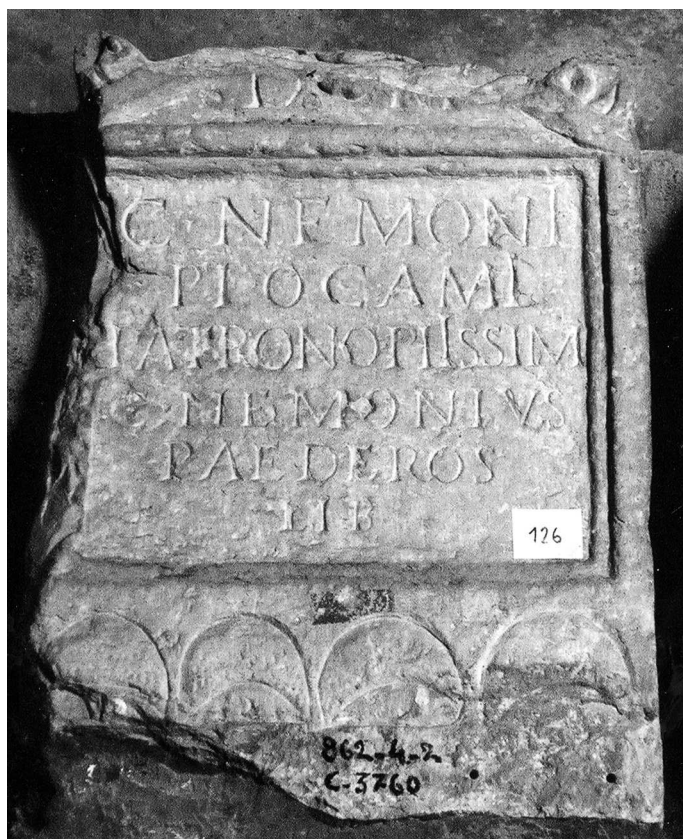 D M
C NEMONI
PLOCAMI
PATRONO PIISSIM
C NEMONIVS
PAEDEROS
LIB
126
862-4-2
C-3760